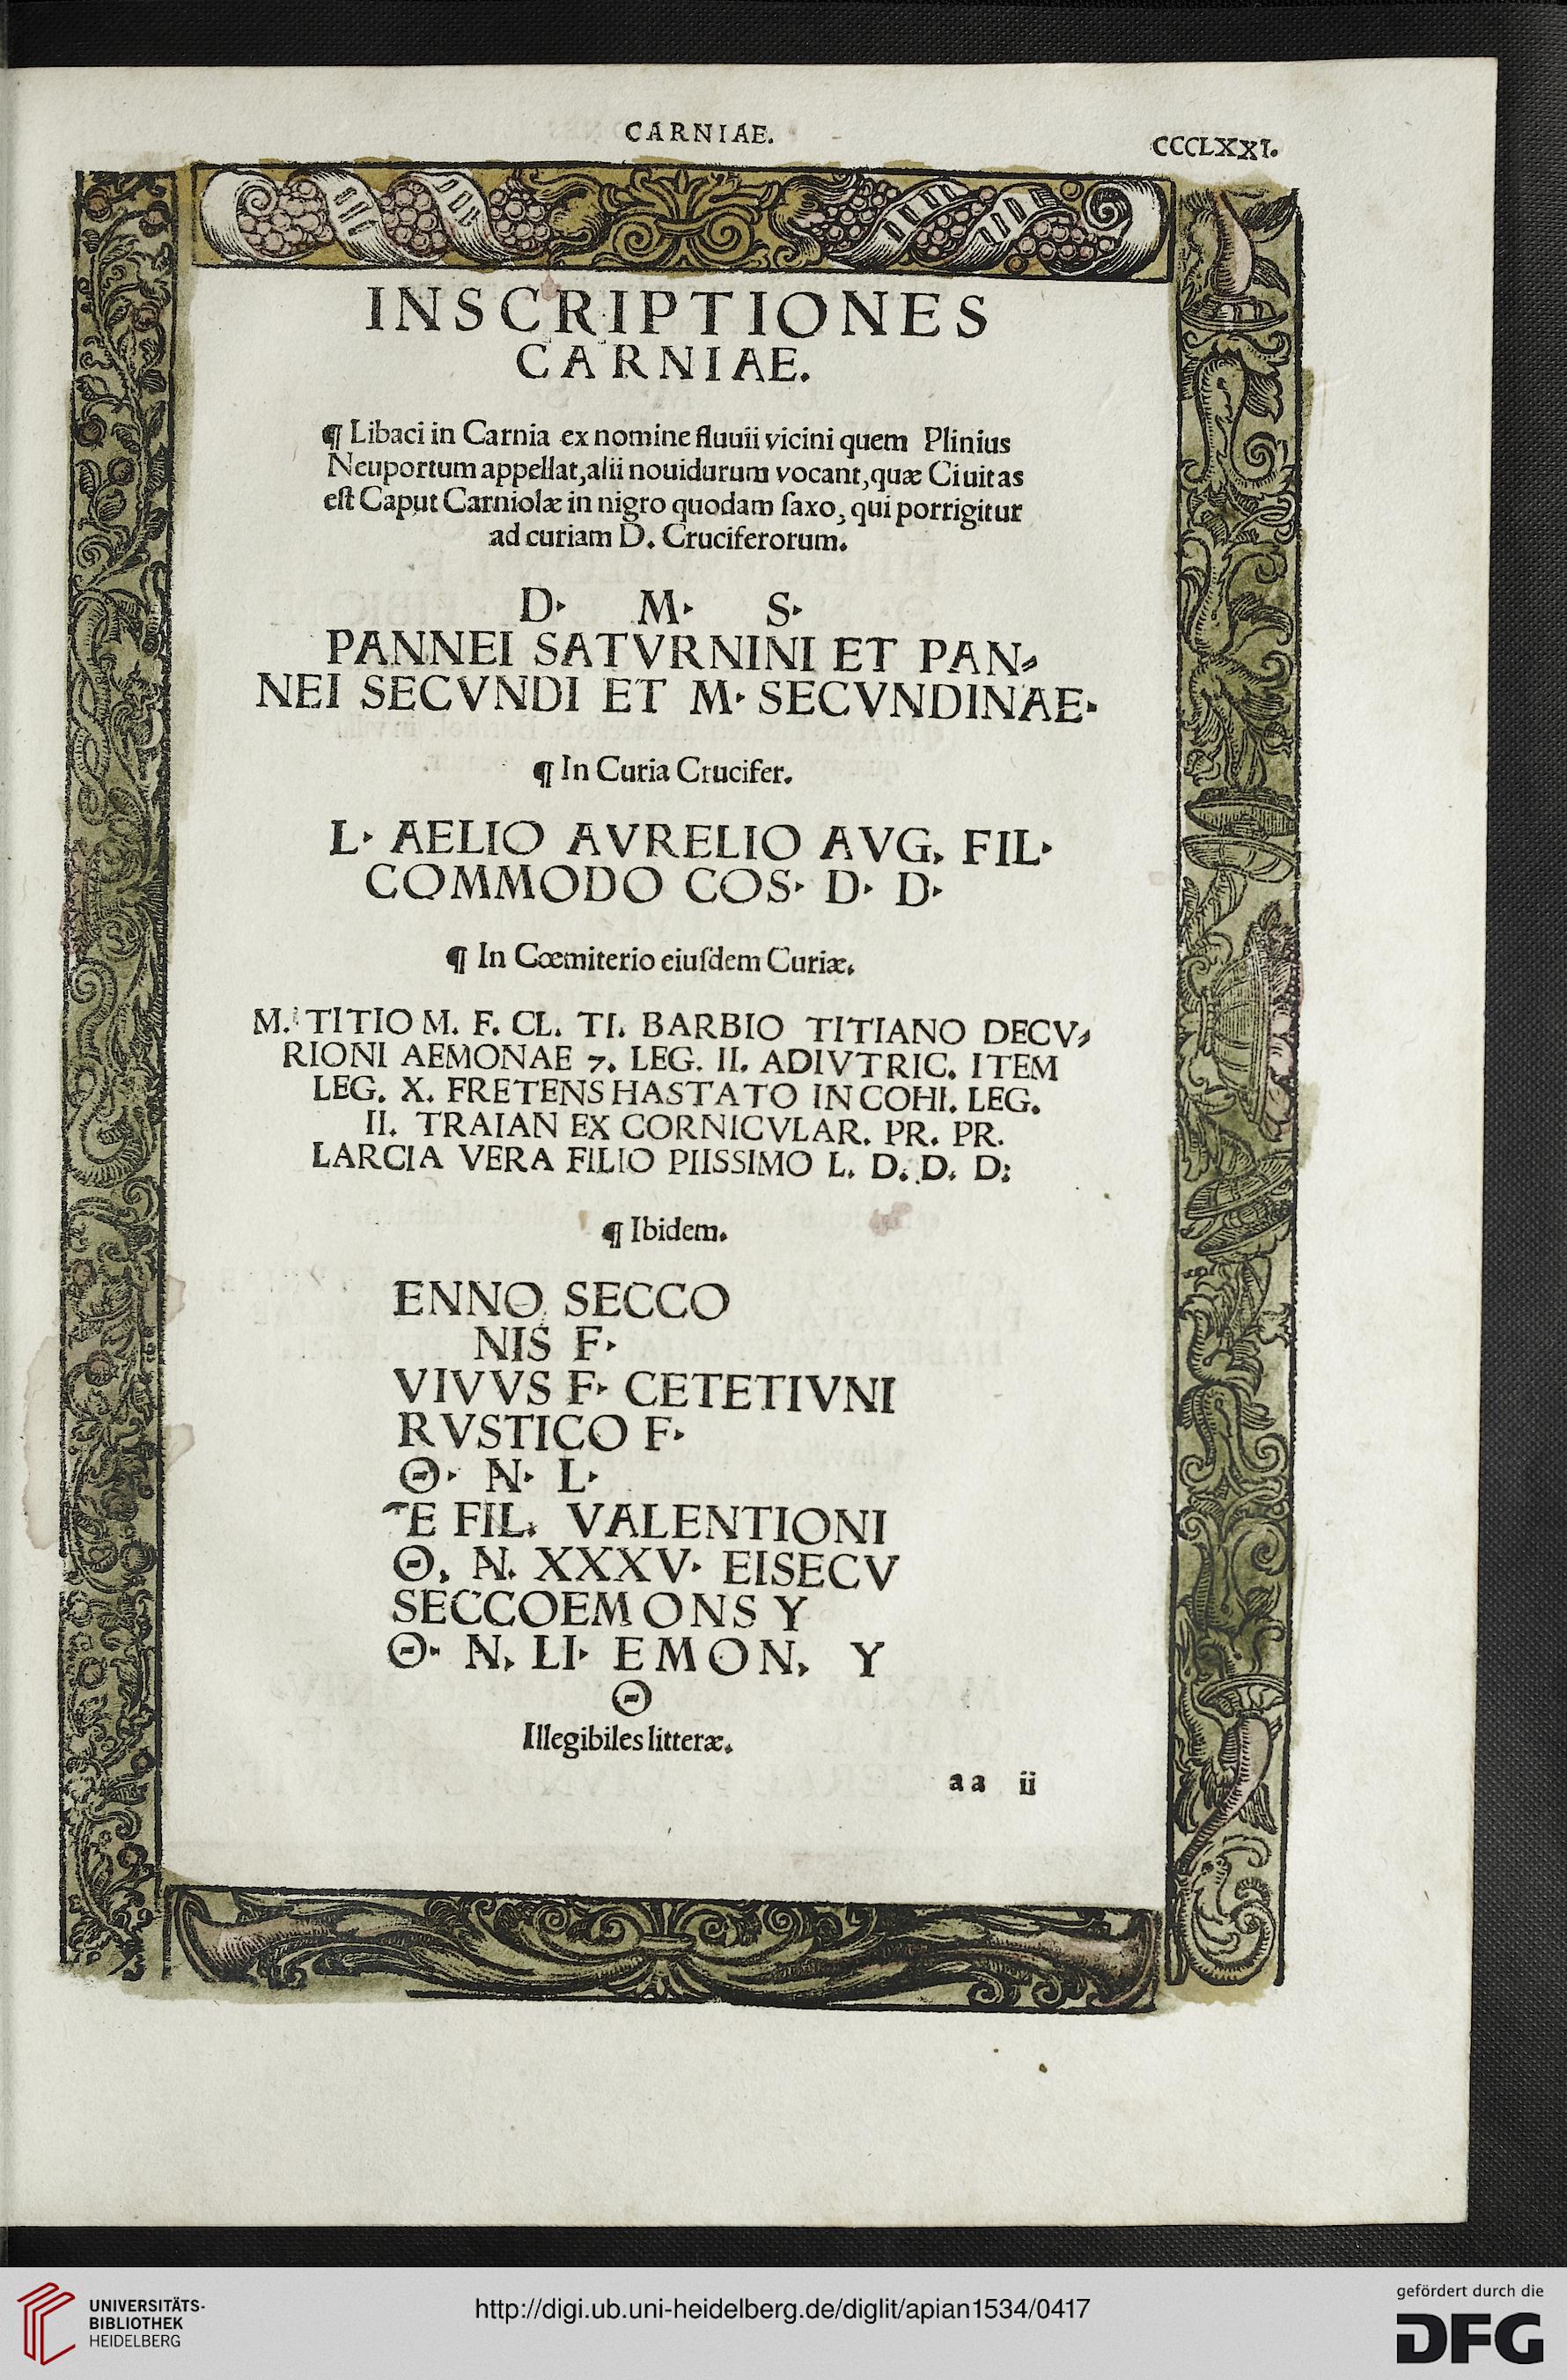 CARNIAE.
CCCLXXI.
INSCRIPTIONES
CARNIAE.
¶ Libaci in Carnia ex nomine fluuii vicini quem Plinius
Neuportum appellat, alii nouidurum vocant, quæ Ciuitas
eſt Caput Carniolæ in nigro quodam ſaxo, qui porrigitur
ad curiam D. Cruciferorum.
D· M· S·
PANNEI SATVRNINI ET PAN⸗
NEI SECVNDI ET M· SECVNDINAE·
¶ In Curia Crucifer.
L· AELIO AVRELIO AVG, FIL·
COMMODO COS· D· D·
¶ In Cœmiterio eiuſdem Curiæ.
M. TITIO M. F. CL. TI. BARBIO TITIANO DECV⸗
RIONI AEMONAE 7. LEG. II. ADIVTRIC. ITEM
LEG. X. FRETENS HASTATO IN COHI. LEG.
II. TRAIAN EX CORNICVLAR. PR. PR.
LARCIA VERA FILIO PIISSIMO L. D. D. D:
¶ Ibidem.
ENNO SECCO
NIS F·
VIVVS F· CETETIVNI
RVSTICO F·
Θ· N· L·
E FIL. VALENTIONI
Θ, N. XXXV· EISECV
SECCOEMONS Y
Θ· N, LI· EMON, Y
Θ
Illegibiles litteræ.
aa ii
UNIVERSITÄTS-
BIBLIOTHEK
HEIDELBERG
http://digi.ub.uni-heidelberg.de/diglit/apian1534/0417
gefördert durch die
DFG